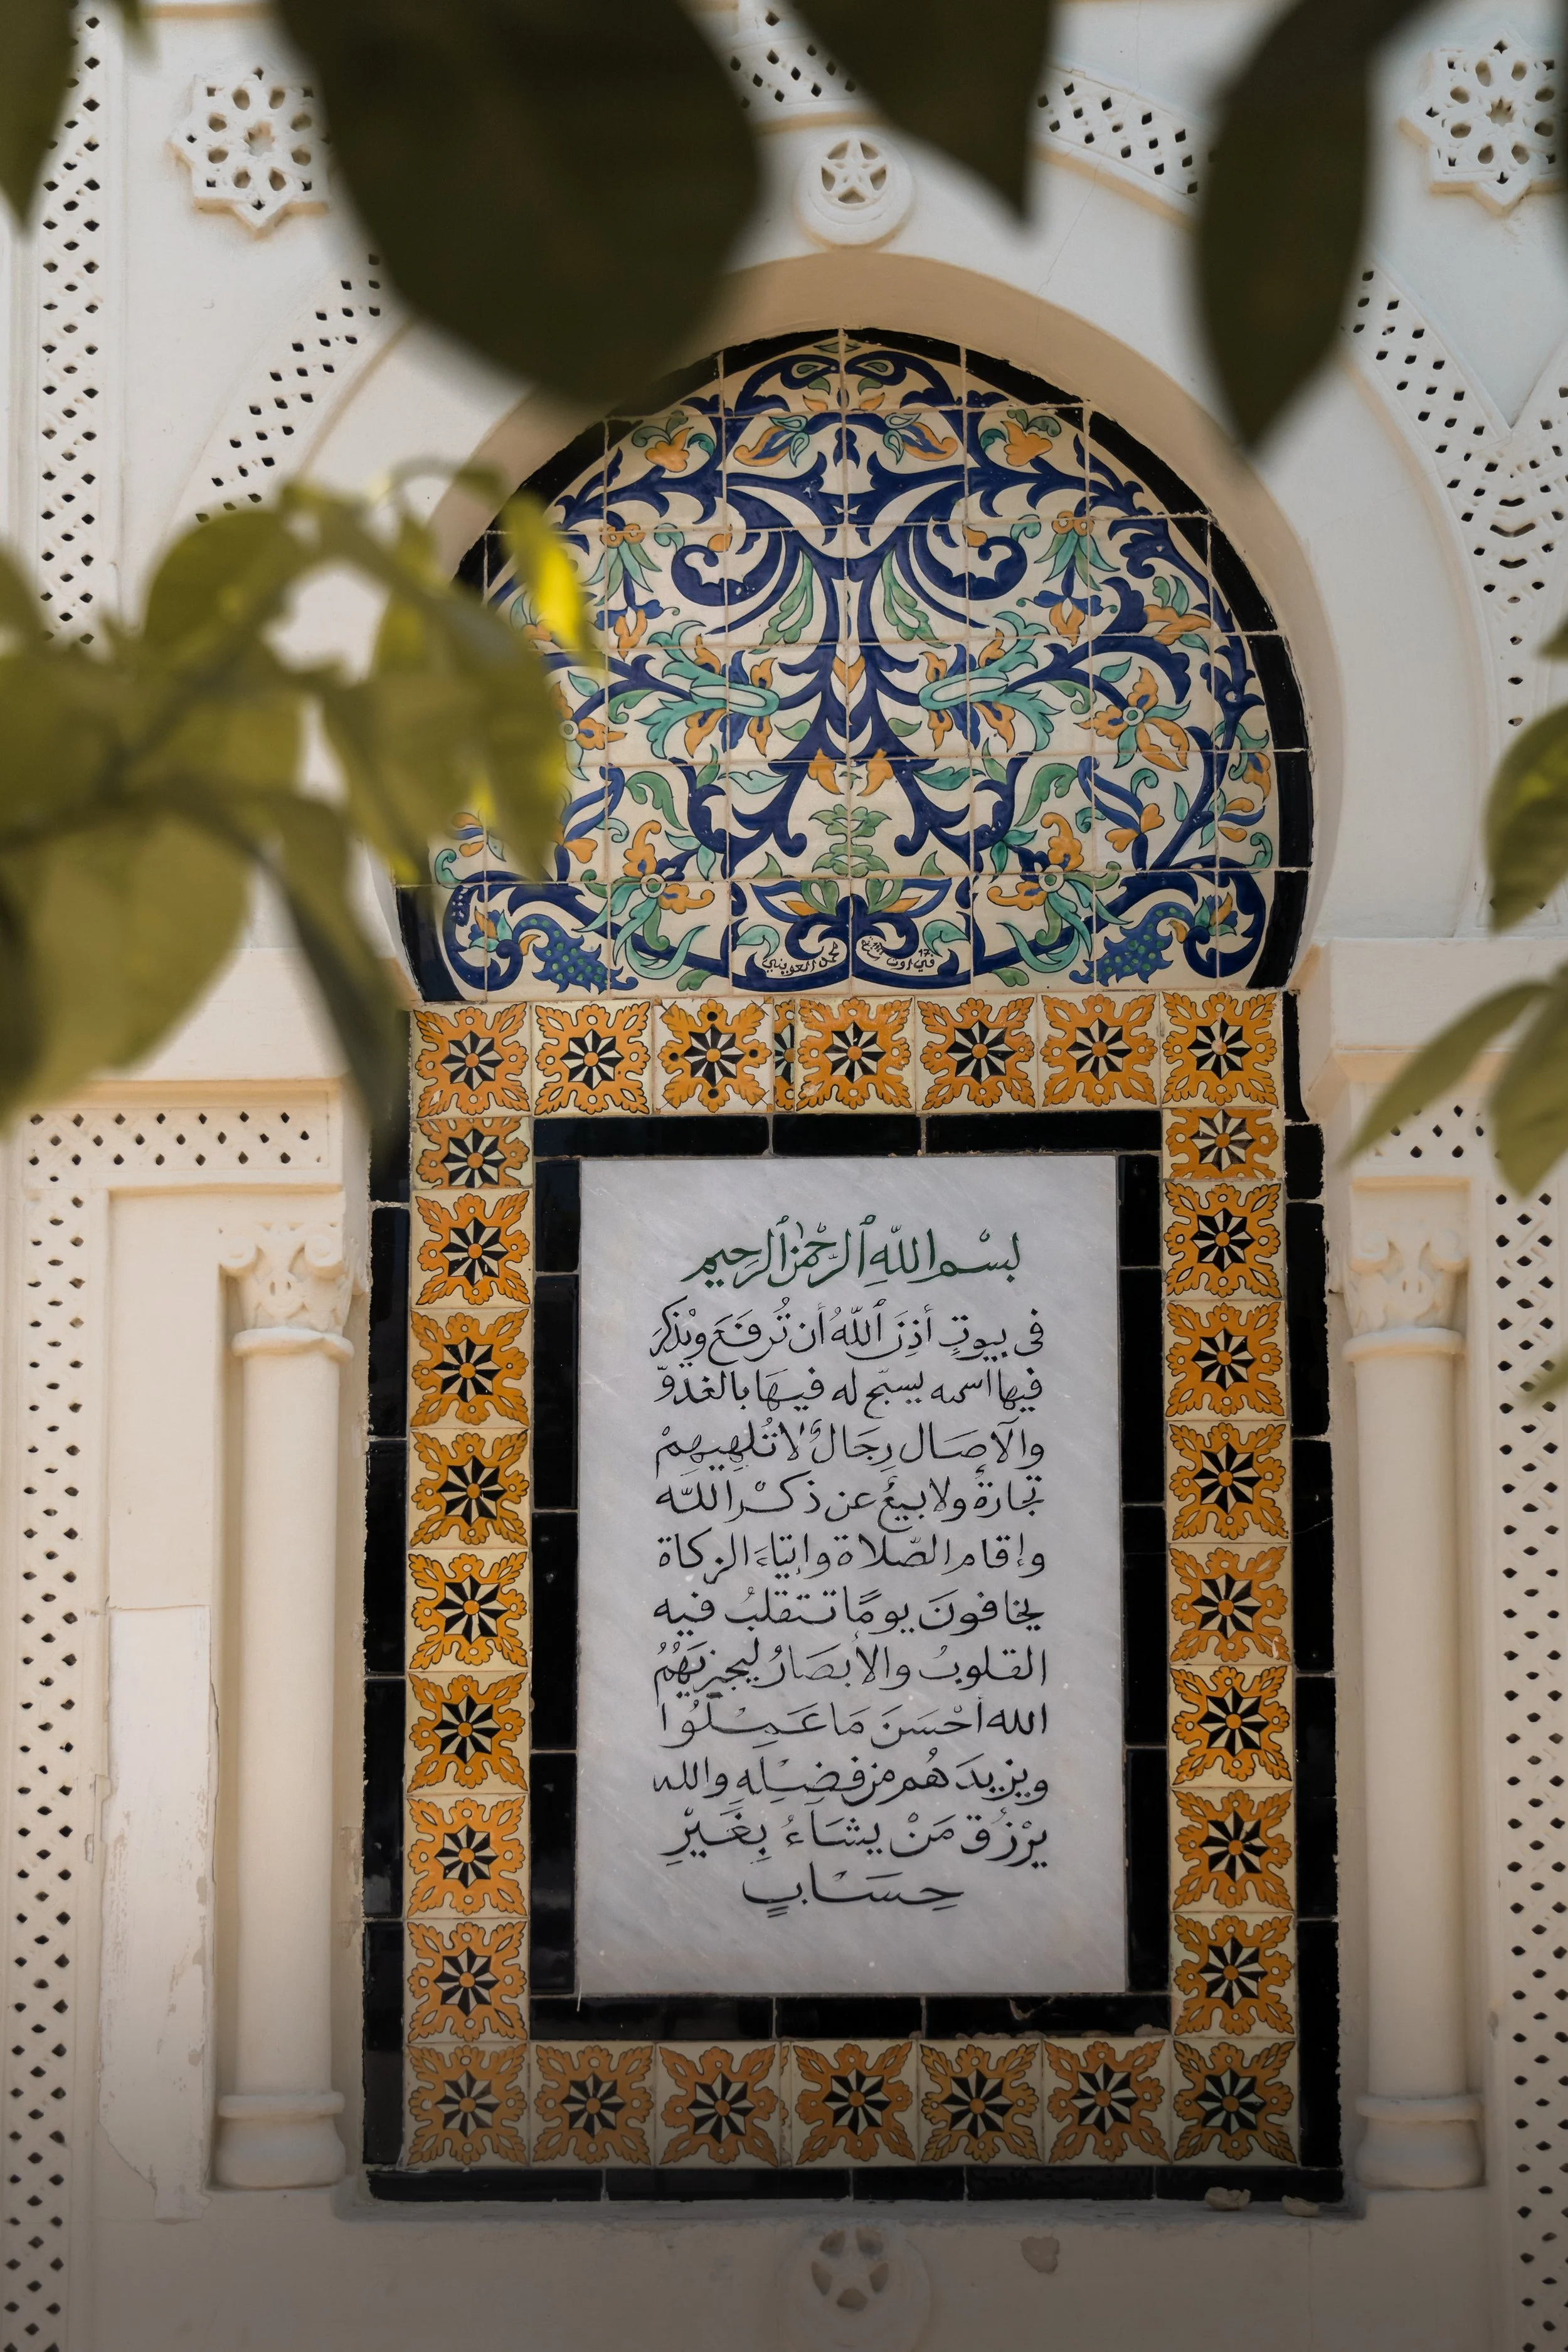 محل العويني في اوت سنة
بسْم اللّهِ ٱلرَّحْمٰن ٱلرَحيم
فى بيوتٍ أذِنَ ٱللّهُ أن تُرفَعَ ويُذكرَ
فيها اسمه يسبّح له فيهَا بالغدوّ
والآصَال رِجَالٌ لاتُلهِيهِمْ
تجارةٌ ولابيعٌ عن ذكْر اللّه
وإقام الصّلاة وإيتاءَ الزكاة
يخافونَ يومًا تتقلبُ فيه
القلوبُ والأبصَارُ ليجزيَهُمُ
الله أحْسَنَ مَا عَمِلُوا
ويزيدَهُم من فضْلِهِ والله
يرْزُق مَنْ يشَاءُ بِغَيْرِ
حِسَابٍ